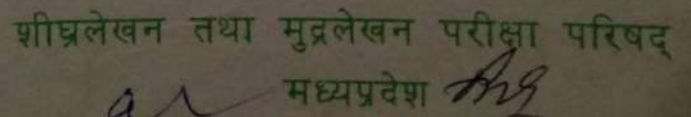 शीघ्रलेखन तथा मुद्रलेखन परीक्षा परिषद्
मध्यप्रदेश